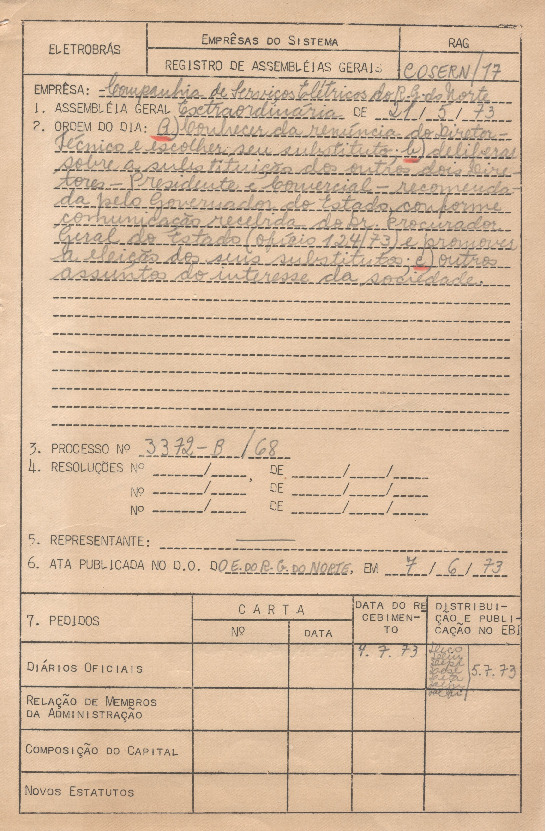 ELETROBRÁS
EMPRÊSAS DO SISTEMA
RAG
REGISTRO DE ASSEMBLÉIAS GERAIS
COSERN/17
EMPRÊSA: Companhia de Serviços Elétricos do R.G. do Norte
1. ASSEMBLÉIA GERAL Extraordinária DE 21/5/73
2. ORDEM DO DIA: a) Conhecer da renúncia do Diretor
Técnico e escolher seu substituto; b) deliberar
sobre a substituição dos outros dois Dire-
tores - Presidente e Comercial - recomenda-
da pelo Governador do Estado, conforme
comunicação recebida do Dr. Procurador
Geral do Estado (ofício 124/73) e promover
a eleição dos seus substitutos; c) outros
assuntos do interesse da sociedade.
3. PROCESSO Nº 3372-B /68
4. RESOLUÇÕES Nº ______/____, DE ______/____/____
Nº ______/____ DE ______/____/____
Nº ______/____ DE ______/____/____
5. REPRESENTANTE:
6. ATA PUBLICADA NO D.O. DO E. DO R. G. DO NORTE, EM 7/6/73
7. PEDIDOS
CARTA
Nº
DATA
DATA DO RE
CEBIMEN-
TO
DISTRIBUI-
ÇÃO E PUBLI-
CAÇÃO NO EBI
DIÁRIOS OFICIAIS
4.7.73
5.7.73
RELAÇÃO DE MEMBROS
DA ADMINISTRAÇÃO
COMPOSIÇÃO DO CAPITAL
NOVOS ESTATUTOS